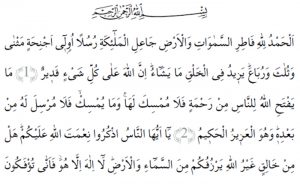 بِسْمِ اللّٰهِ الرَّحْمٰنِ الرَّحِيمِ
اَلْحَمْدُ لِلّٰهِ فَاطِرِ السَّمٰوَاتِ وَالْاَرْضِ جَاعِلِ الْمَلٰٓئِكَةِ رُسُلًا اُو۬لٓي اَجْنِحَةٍ مَثْنٰى
وَثُلٰثَ وَرُبَاعَۜ يَزِيدُ فِي الْخَلْقِ مَا يَشَٓاءُۜ اِنَّ اللّٰهَ عَلٰى كُلِّ شَيْءٍ قَدِيرٌ ﴿1﴾ مَا
يَفْتَحِ اللّٰهُ لِلنَّاسِ مِنْ رَحْمَةٍ فَلَا مُمْسِكَ لَهَاۚ وَمَا يُمْسِكْۙ فَلَا مُرْسِلَ لَهُ مِنْ
بَعْدِهٖۜ وَهُوَ الْعَزِيزُ الْحَكِيمُ ﴿2﴾ يَٓا اَيُّهَا النَّاسُ اذْكُرُوا نِعْمَتَ اللّٰهِ عَلَيْكُمْۜ هَلْ
مِنْ خَالِقٍ غَيْرُ اللّٰهِ يَرْزُقُكُمْ مِنَ السَّمَٓاءِ وَالْاَرْضِۜ لَٓا اِلٰهَ اِلَّا هُوَۘ فَاَنّٰى تُؤْفَكُونَ